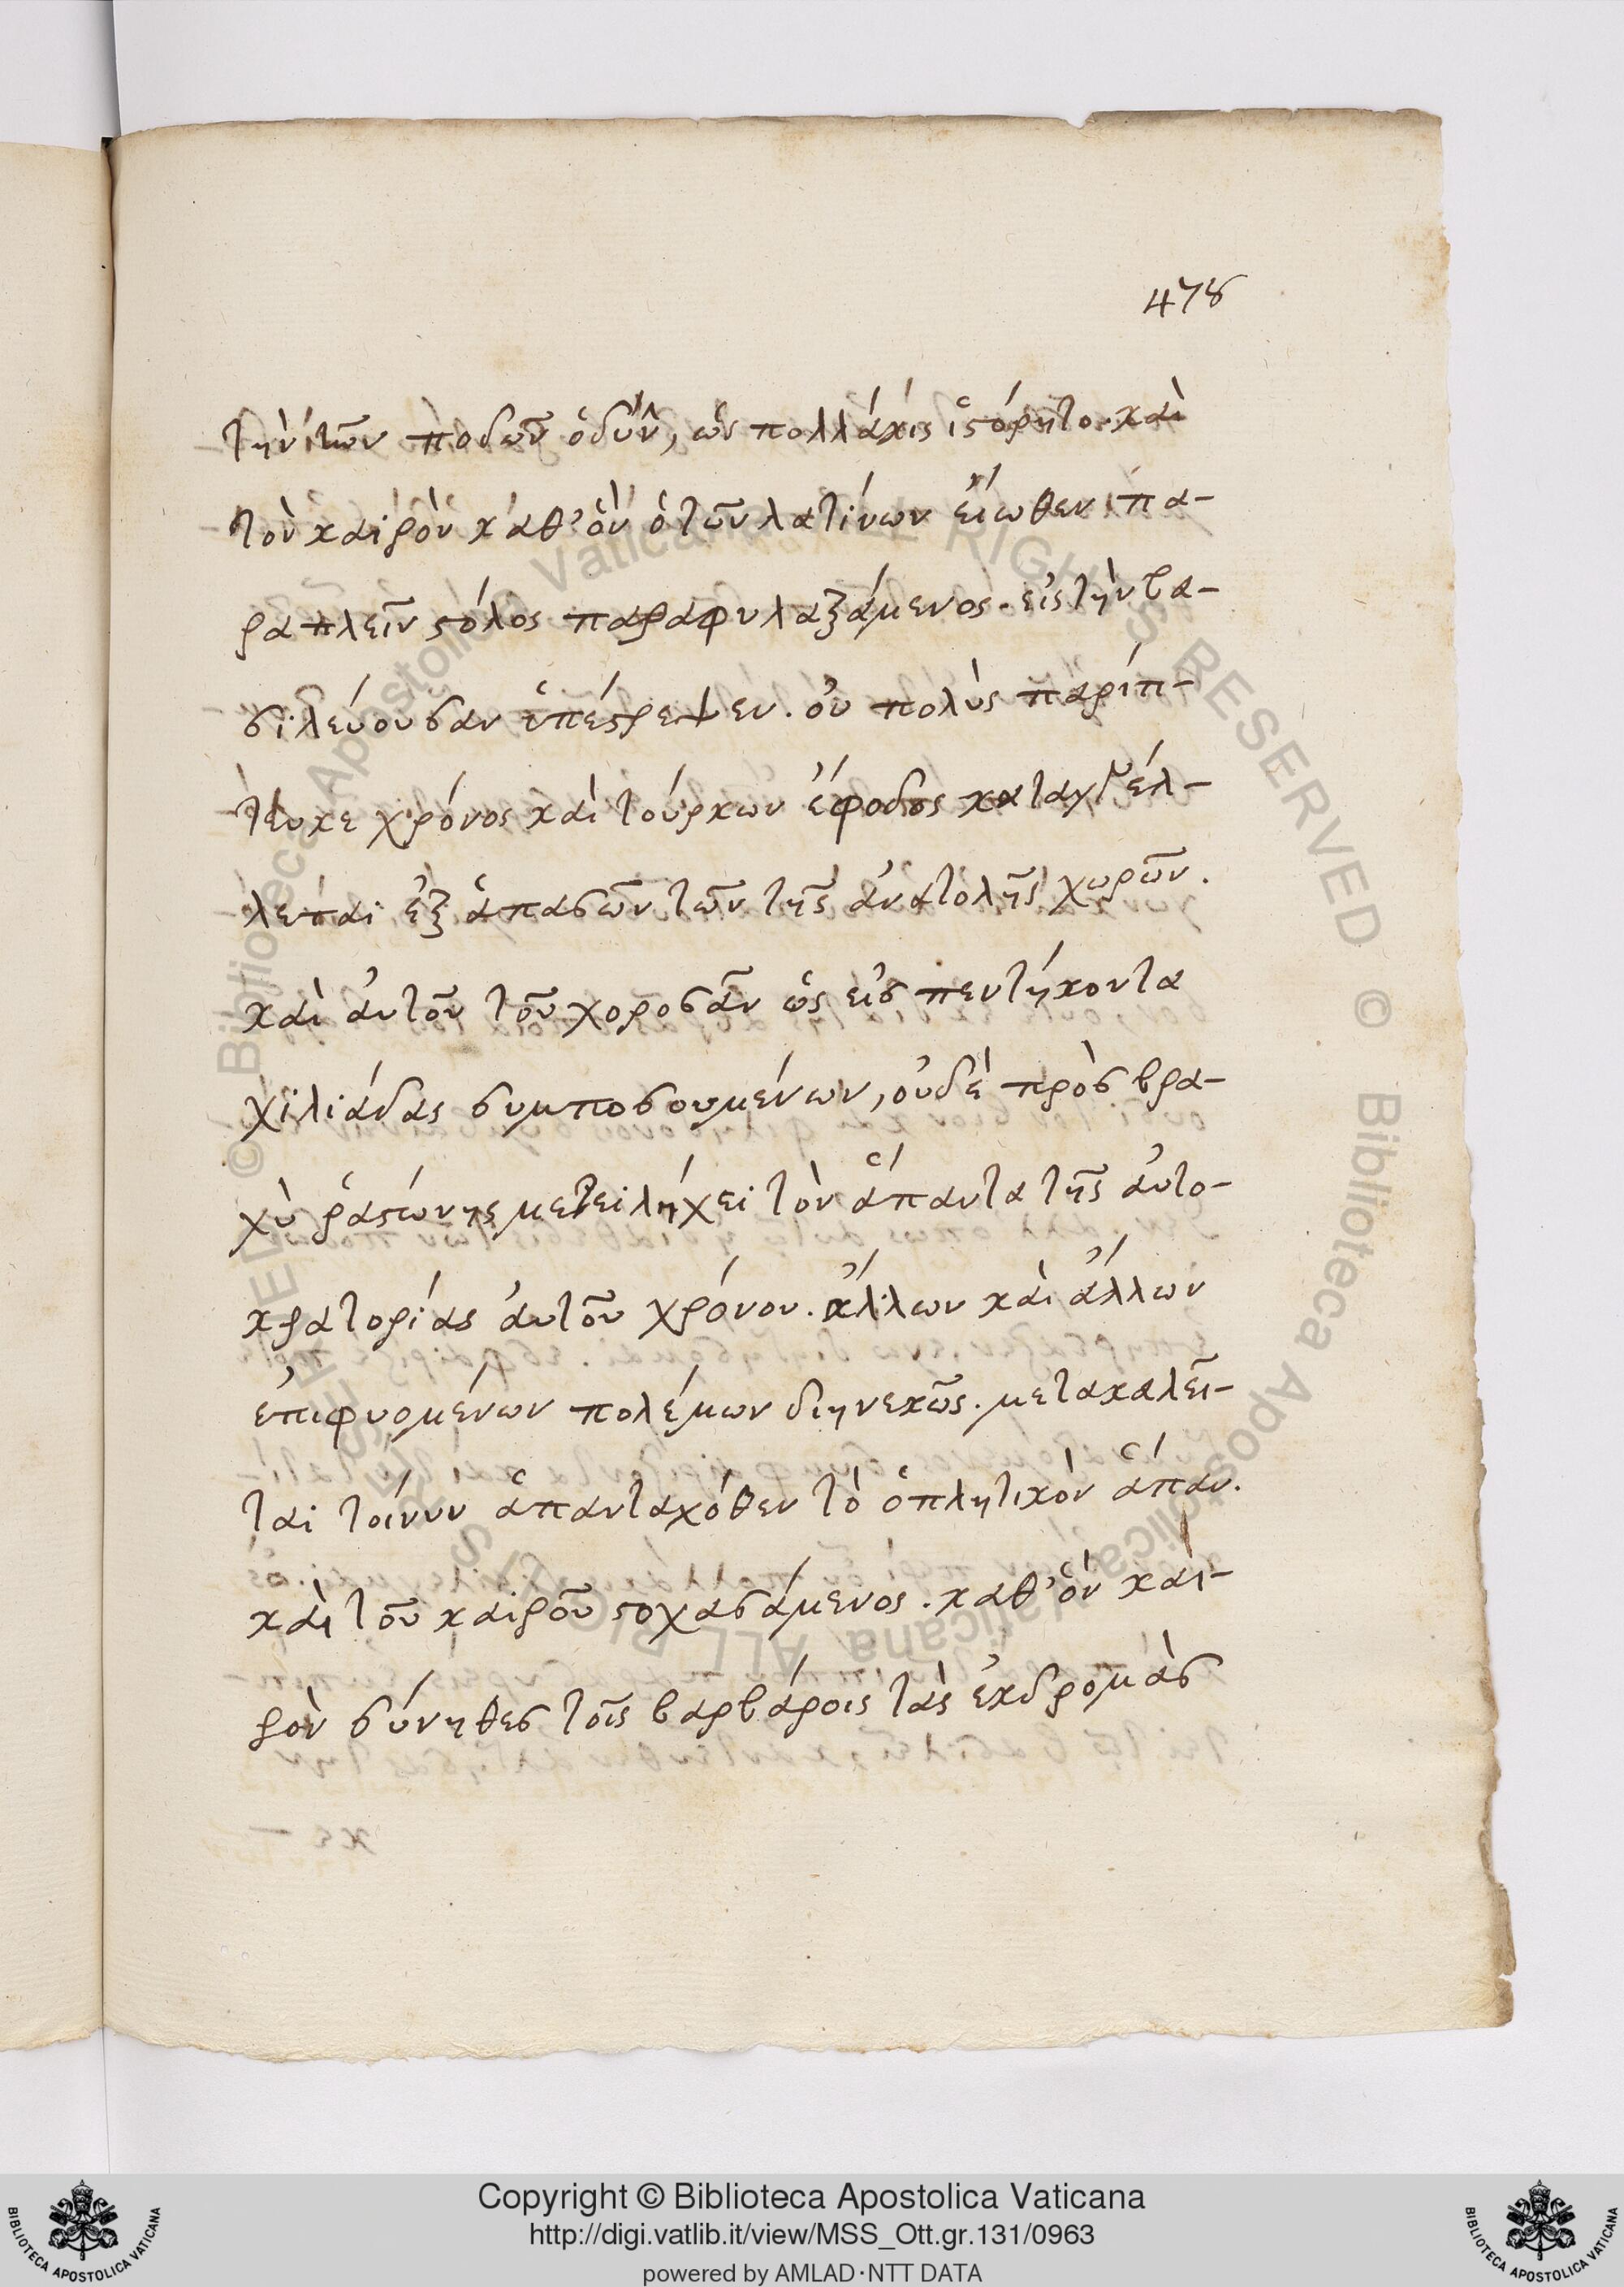 478
τὴν τῶν ποδῶν ὀδύν, ὡς πολλάκις ἱστόρητο. καὶ
τὸν καιρὸν καθ' ὃν ὁ τῶν λατίνων εἴωθεν πα-
ραπλεῖν στόλος παραφυλαξάμενος. εἰς τὴν βα-
σιλεύουσαν ὑπέστρεψεν. οὐ πολὺς παρίπ-
τευκε χρόνος καὶ τούρκων ἔφοδος καταγγέλ-
λεται ἐξ ἁπασῶν τῶν τῆς ἀνατολῆς χωρῶν.
καὶ αὐτοῦ τοῦ χοροσᾶν ὡς εἰς πεντήκοντα
χιλιάδας συμποσουμένων, οὐδὲ πρὸς βρα-
χὺ ῥαστώνης μετειλήχει τὸν ἅπαντα τῆς αὐτο-
κρατορίας αὐτοῦ χρόνον. ἄλλων καὶ ἄλλων
ἐπιφυομένων πολέμων διηνεκῶς. μετακαλεῖ-
ται τοίνυν ἁπανταχόθεν τὸ ὁπλητικὸν ἅπαν.
καὶ τοῦ καιροῦ στοχασάμενος. καθ' ὃν και-
ρὸν σύνηθες τοῖς βαρβάροις τὰς ἐκδρομὰς
© Biblioteca Apostolica Vaticana ALL RIGHTS RESERVED © Biblioteca Apostolica Vaticana ALL RIGHTS RESERVED
Copyright © Biblioteca Apostolica Vaticana
http://digi.vatlib.it/view/MSS_Ott.gr.131/0963
powered by AMLAD·NTT DATA
BIBLIOTECA APOSTOLICA VATICANA
BIBLIOTECA APOSTOLICA VATICANA